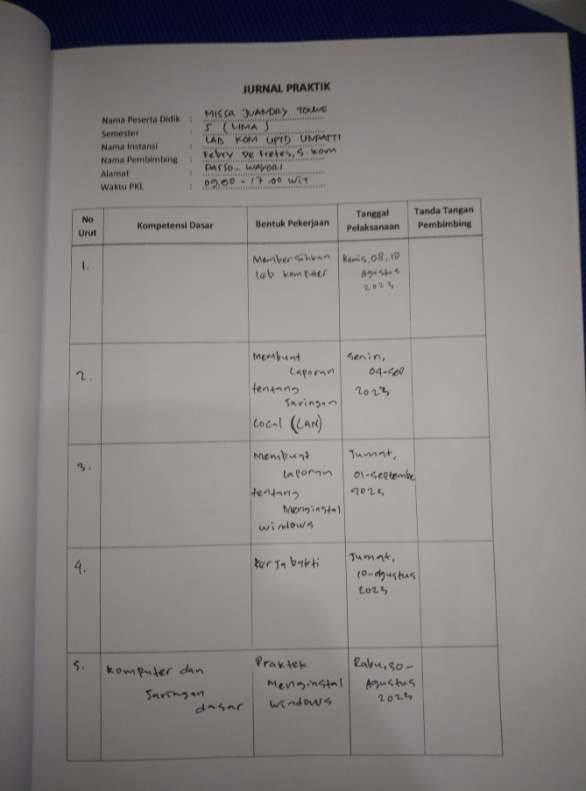 JURNAL PRAKTIK
Nama Peserta Didik : MISSA JUANDRY
Semester : 5 (LIMA)
Nama Instansi : LAB KOM UPTD UNPATTI
Nama Pembimbing : Febry De Fretes, S. Kom
Alamat : PASSO - WAYORI
Waktu PKL : 09.00 - 17.00 WIT
No Urut
Kompetensi Dasar
Bentuk Pekerjaan
Tanggal Pelaksanaan
Tanda Tangan Pembimbing
1.
Membersihkan
lab komputer
Kamis, 08, 10
Agustus
2023
2.
Membuat
Laporan
tentang
Jaringan
Local (LAN)
Senin,
04-Sep
2023
3.
Membuat
Laporan
tentang
Menginstal
windows
Jumat,
01-Septembe
2023
4.
kerja bakti
Jumat,
10-Agustus
2023
5.
Komputer dan
Jaringan
dasar
Praktek
Menginstal
windows
Rabu, 30-
Agustus
2023